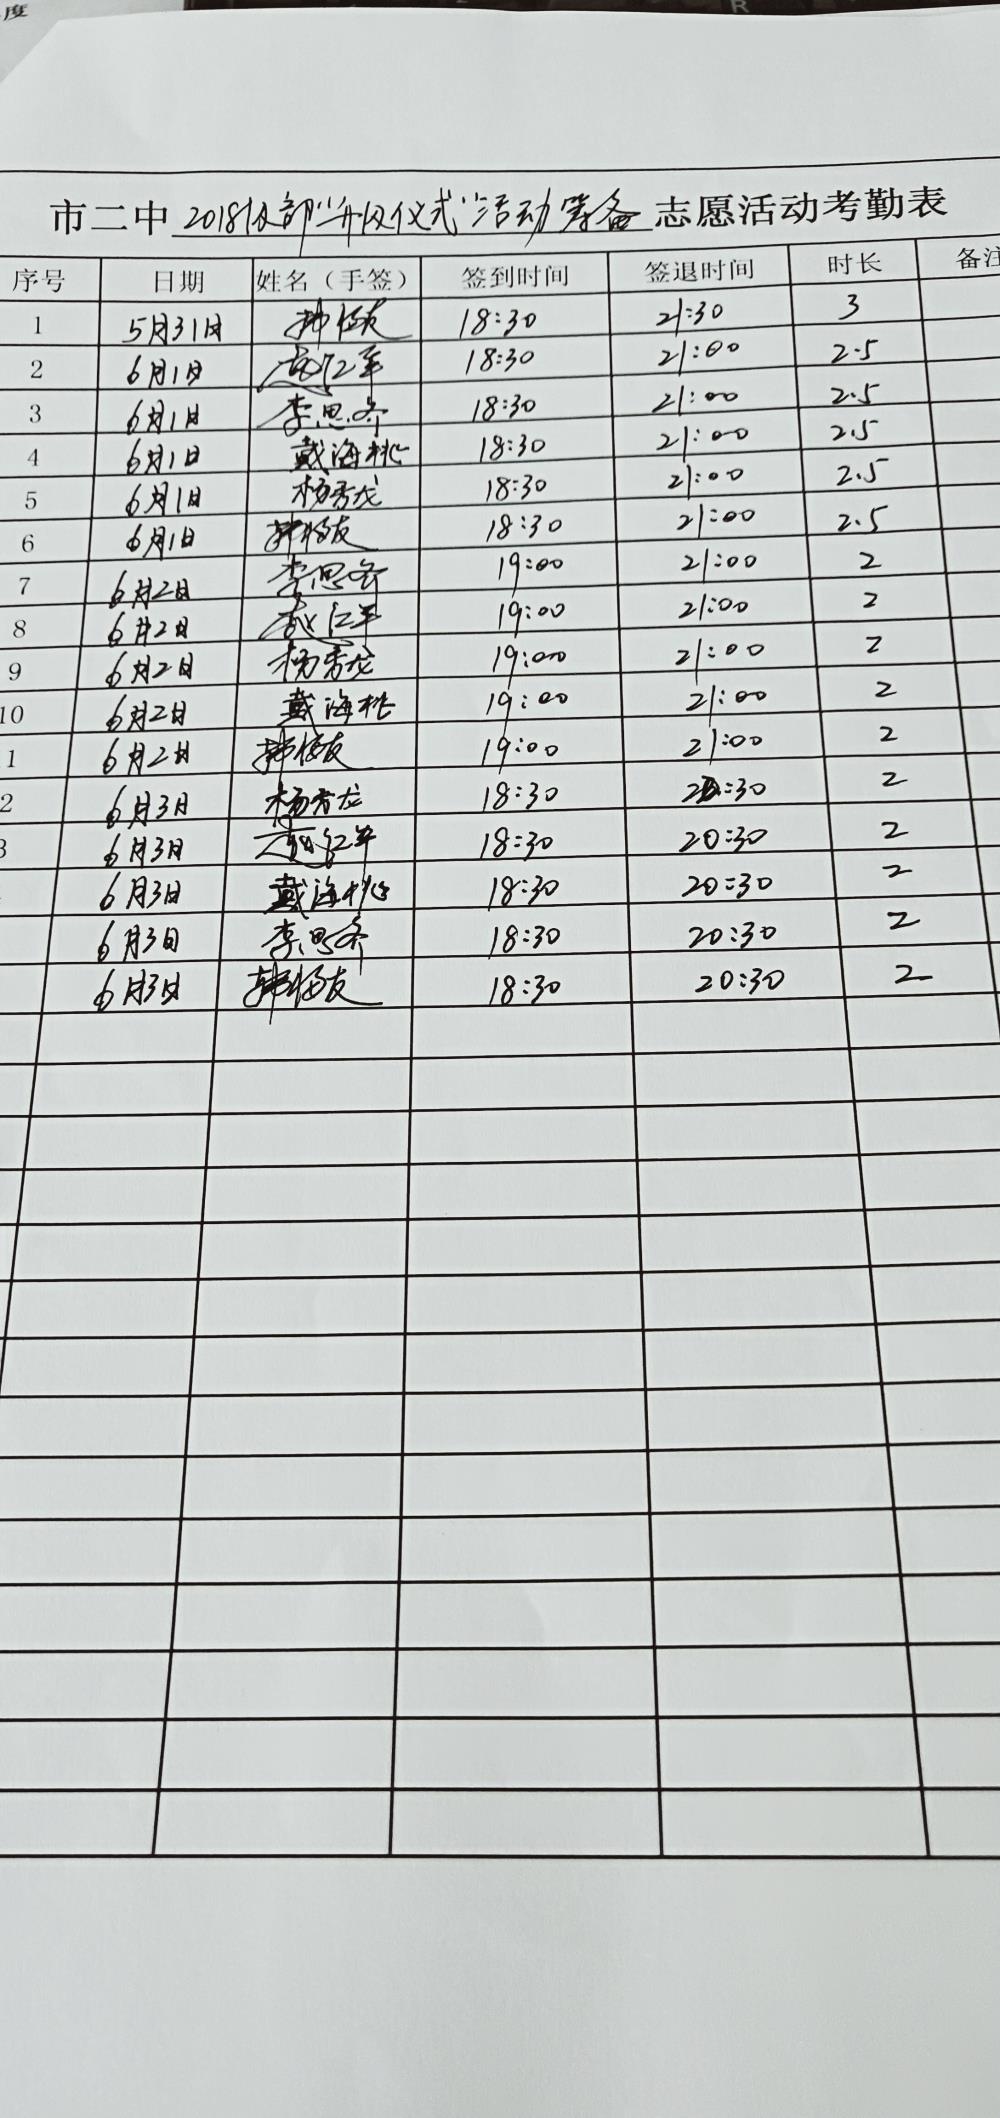 度
R
市二中 2018级部"升仪仪式"活动筹备 志愿活动考勤表
序号 日期 姓名（手签） 签到时间 签退时间 时长 备注
1 5月31日 18:30 21:30 3
2 6月1日 18:30 21:00 2.5
3 6月1日 李思齐 18:30 21:00 2.5
4 6月1日 戴海桃 18:30 21:00 2.5
5 6月1日 杨秀龙 18:30 21:00 2.5
6 6月1日 18:30 21:00 2.5
7 6月2日 李思齐 19:00 21:00 2
8 6月2日 赵红军 19:00 21:00 2
9 6月2日 杨秀龙 19:00 21:00 2
10 6月2日 戴海桃 19:00 21:00 2
1 6月2日 19:00 21:00 2
2 6月3日 杨秀龙 18:30 20:30 2
3 6月3日 赵红军 18:30 20:30 2
6月3日 戴海桃 18:30 20:30 2
6月3日 李思齐 18:30 20:30 2
6月3日 18:30 20:30 2